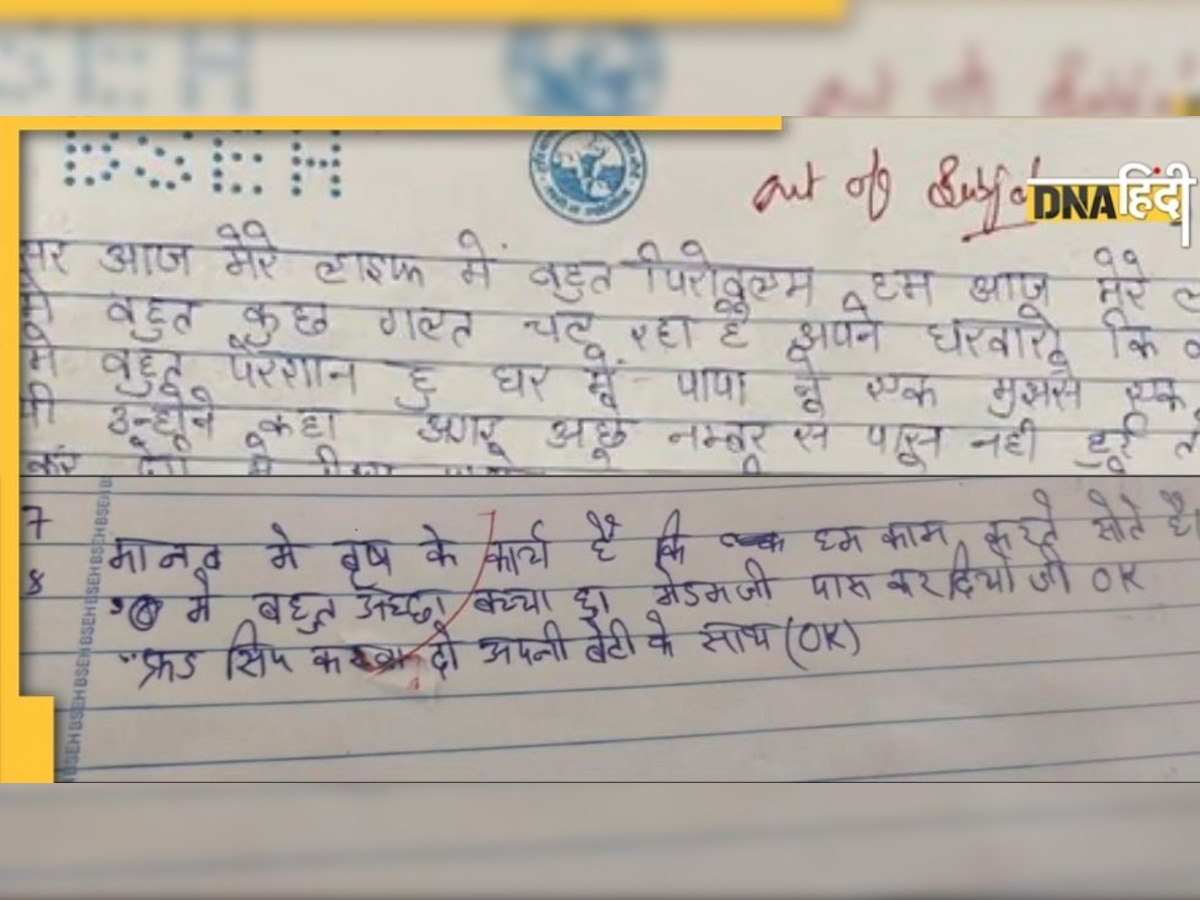 BSEH
out of
DNA हिंदी
सर आज मेरे लाइफ में बहुत पिरोब्लम हम आज मेरे
मे बहुत कुछ गल्त चल रहा है अपने घरवारो कि
मे बहुत परेशान हु घर में पापा ने एक मुझसे एक
उन्होने कहा अगर अछे नम्बर से पास नही हुई
7
मानव मे वृष के कार्य है कि हम काम करते सोते है
8
मे बहुत अच्छा बच्चा हु। मेडमजी पास कर दियो जी OK
फ्रड सिप करवा दो अपनी बेटी के साथ (OK)
BSEH BSEH BSEH BSEH BSEH BSEH